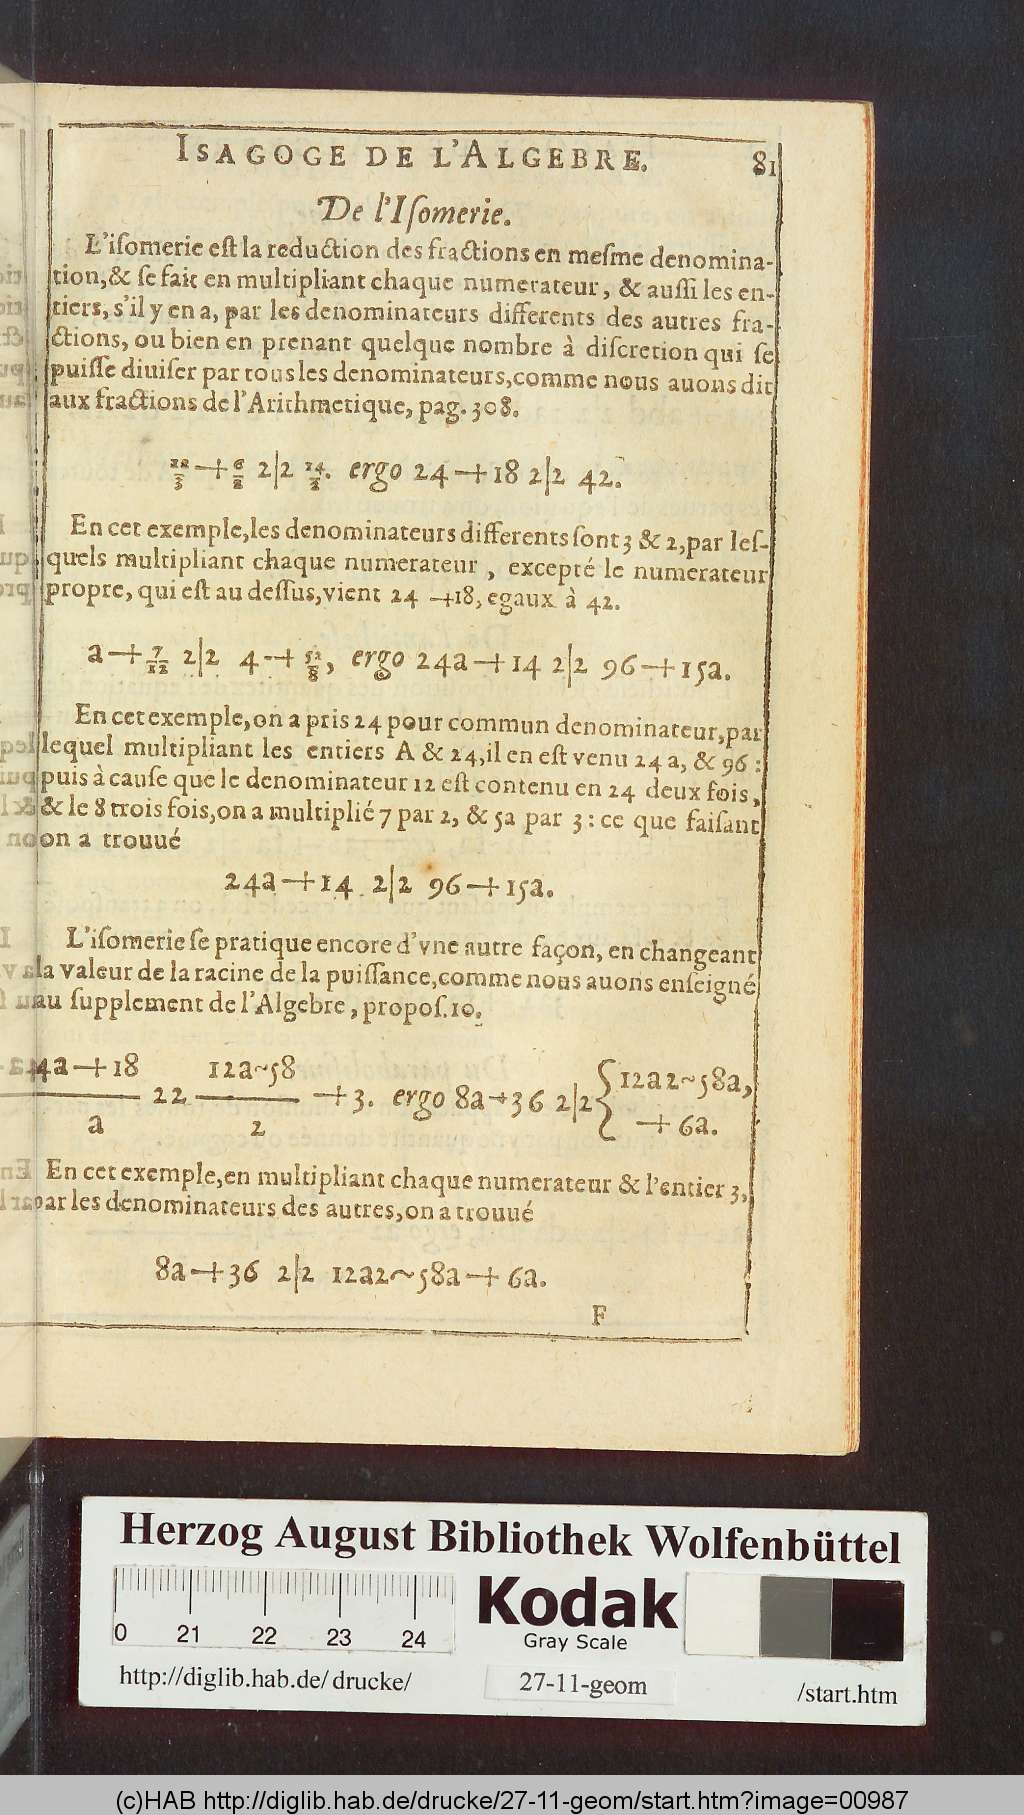 ISAGOGE DE L'ALGEBRE. 81
De l'Isomerie.
L'isomerie est la reduction des fractions en mesme denomina-
tion, & se fait en multipliant chaque numerateur, & aussi les en-
tiers, s'il y en a, par les denominateurs differents des autres fra-
ctions, ou bien en prenant quelque nombre à discretion qui se
puisse diuiser par tous les denominateurs, comme nous auons dit
aux fractions de l'Arithmetique, pag. 308.
12/3 + 6/2 2|2 14/2. ergo 24 + 18 2|2 42.
En cet exemple, les denominateurs differents sont 3 & 2, par les-
quels multipliant chaque numerateur, excepté le numerateur
propre, qui est au dessus, vient 24 + 18, egaux à 42.
a + 7/12 2|2 4 + 5a/8, ergo 24a + 14 2|2 96 + 15a.
En cet exemple, on a pris 24 pour commun denominateur, par
lequel multipliant les entiers A & 24, il en est venu 24 a, & 96 :
puis à cause que le denominateur 12 est contenu en 24 deux fois,
& le 8 trois fois, on a multiplié 7 par 2, & 5a par 3 : ce que faisant
on a trouué
24a + 14 2|2 96 + 15a.
L'isomerie se pratique encore d'vne autre façon, en changeant
la valeur de la racine de la puissance, comme nous auons enseigné
au supplement de l'Algebre, propos. 10.
4a + 18 12a ~ 58
22 + 3. ergo 8a + 36 2|2 { 12a2 ~ 58a,
a 2 + 6a.
En cet exemple, en multipliant chaque numerateur & l'entier 3,
par les denominateurs des autres, on a trouué
8a + 36 2|2 12a2 ~ 58a + 6a.
F
Herzog August Bibliothek Wolfenbüttel
Kodak
Gray Scale
0 21 22 23 24
http://diglib.hab.de/drucke/ 27-11-geom /start.htm
(c)HAB http://diglib.hab.de/drucke/27-11-geom/start.htm?image=00987